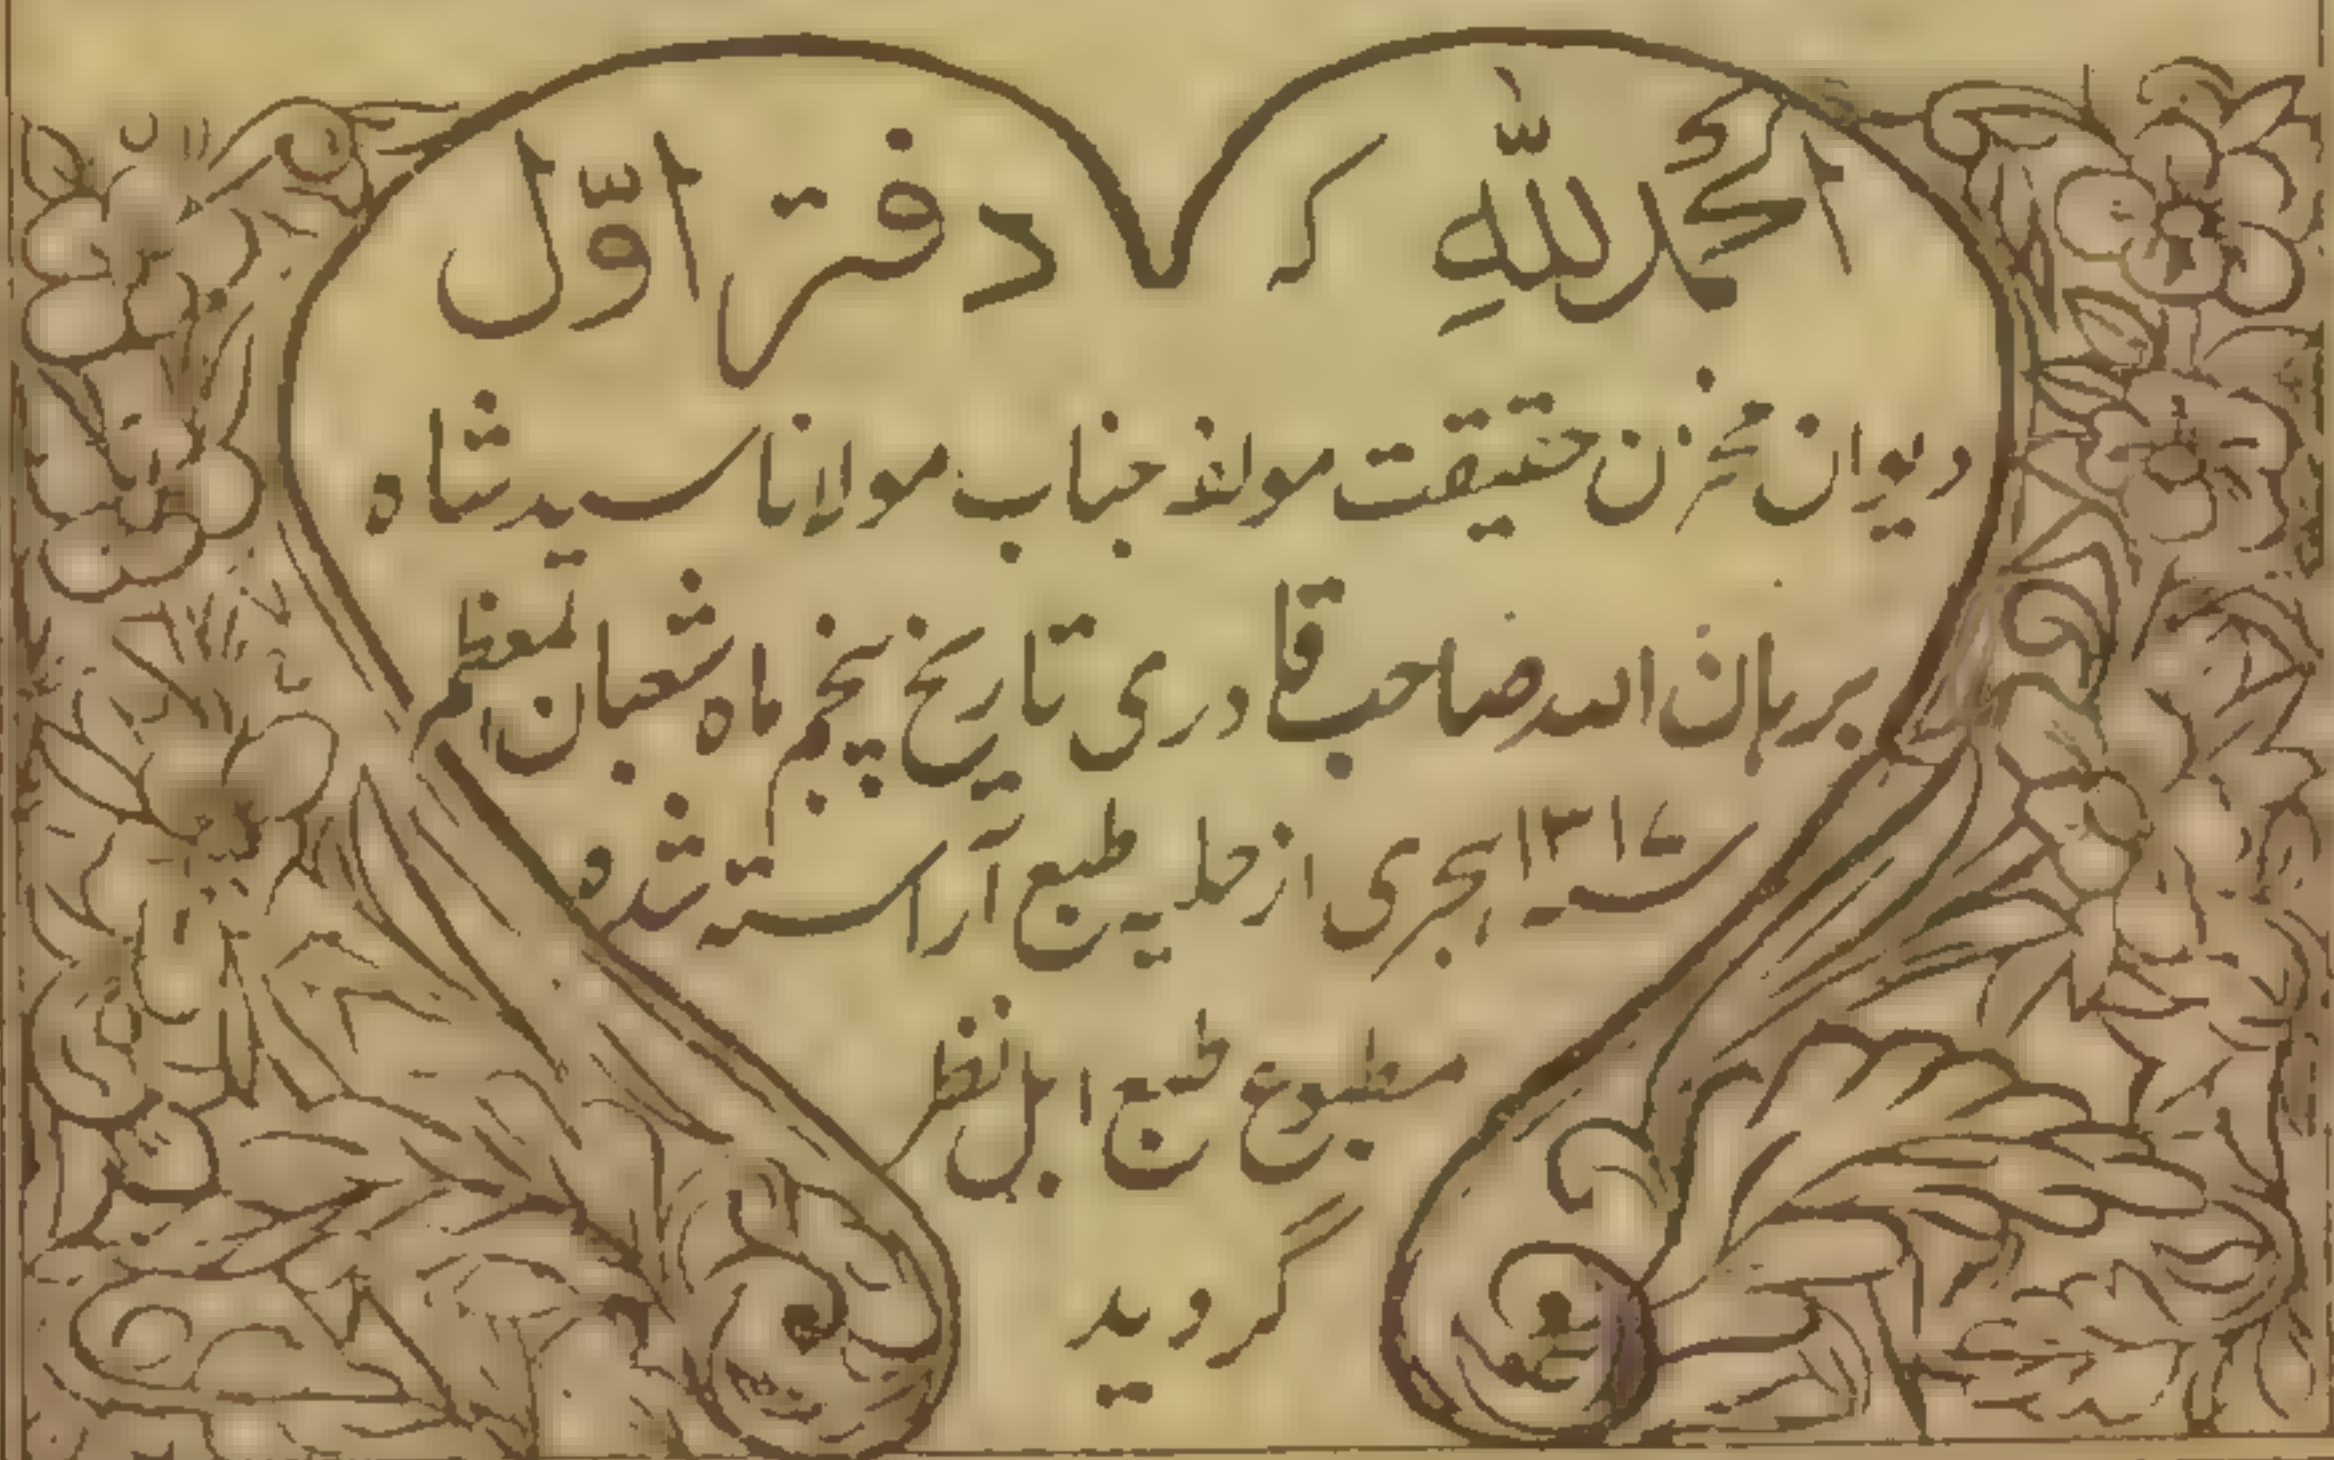 الحمد للّٰهِ کہ دفتر اوّل
دیوان مخزن حقیقت مولفہ جناب مولانا سید شاہ
برہان اللہ صاحب قادری تاریخ پنجم ماہ شعبان المعظم
ہجری از حلیہ طبع آراستہ شدہ
مطبوع طبع اہل نظر
گردید